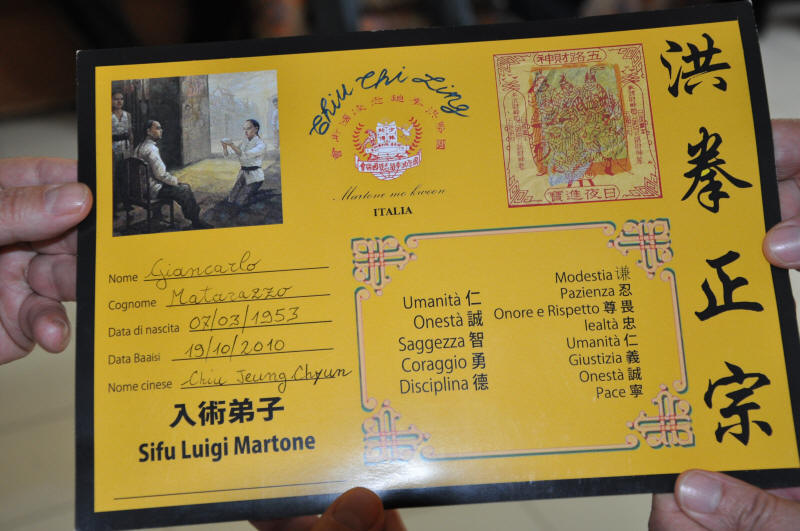 Chiu Chi Ling
Martone mo kweon
ITALIA
五路財神
日夜進寶
洪拳正宗
Nome Giancarlo
Cognome Matarazzo
Data di nascita 07/03/1953
Data Baaisi 19/10/2010
Nome cinese Chiu Jeung Chyun
入術弟子
Sifu Luigi Martone
Umanità 仁
Onestà 誠
Saggezza 智
Coraggio 勇
Disciplina 德
Modestia 谦
Pazienza 忍
Onore e Rispetto 尊畏
lealtà 忠
Umanità 仁
Giustizia 義
Onestà 誠
Pace 寧